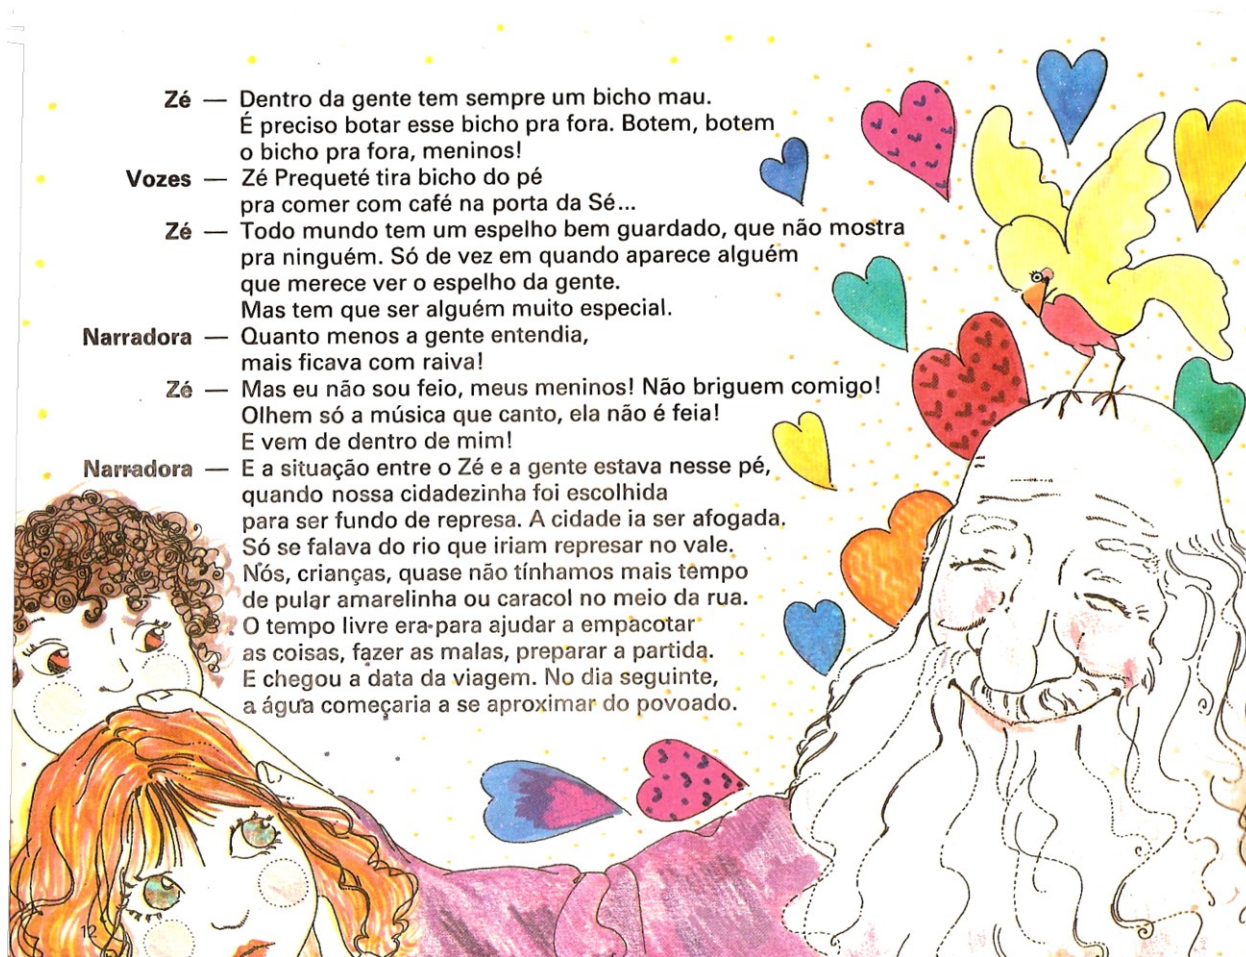 Zé — Dentro da gente tem sempre um bicho mau.
É preciso botar esse bicho pra fora. Botem, botem
o bicho pra fora, meninos!
Vozes — Zé Prequeté tira bicho do pé
pra comer com café na porta da Sé...
Zé — Todo mundo tem um espelho bem guardado, que não mostra
pra ninguém. Só de vez em quando aparece alguém
que merece ver o espelho da gente.
Mas tem que ser alguém muito especial.
Narradora — Quanto menos a gente entendia,
mais ficava com raiva!
Zé — Mas eu não sou feio, meus meninos! Não briguem comigo!
Olhem só a música que canto, ela não é feia!
E vem de dentro de mim!
Narradora — E a situação entre o Zé e a gente estava nesse pé,
quando nossa cidadezinha foi escolhida
para ser fundo de represa. A cidade ia ser afogada.
Só se falava do rio que iriam represar no vale.
Nós, crianças, quase não tínhamos mais tempo
de pular amarelinha ou caracol no meio da rua.
O tempo livre era para ajudar a empacotar
as coisas, fazer as malas, preparar a partida.
E chegou a data da viagem. No dia seguinte,
a água começaria a se aproximar do povoado.
12